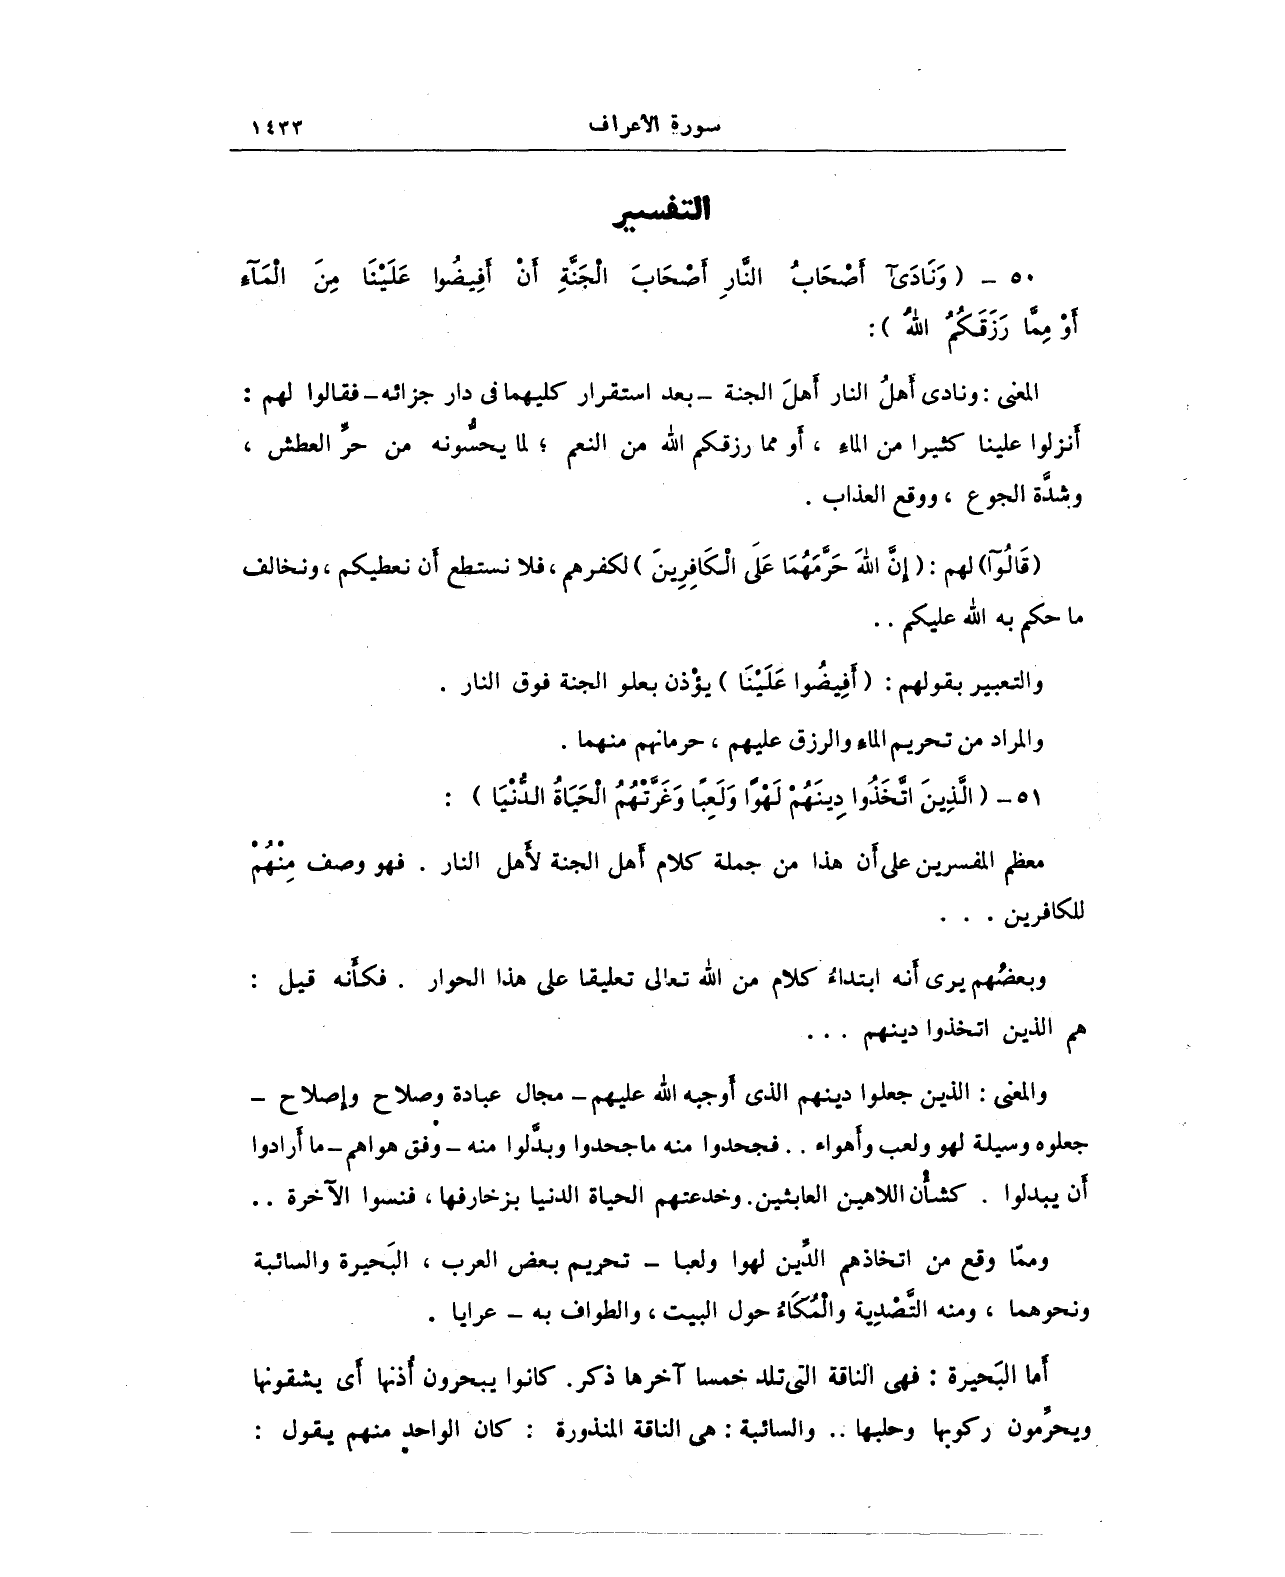 سورة الأعراف ١٤٣٣
التفسير
٥٠ - ( وَنَادَىٰٓ أَصْحَابُ النَّارِ أَصْحَابَ الْجَنَّةِ أَنْ أَفِيضُوا عَلَيْنَا مِنَ الْمَآءِ
أَوْ مِمَّا رَزَقَكُمُ اللهُ ) :
المعنى : ونادى أَهلُ النار أَهلَ الجنة - بعد استقرار كليهما فى دار جزائه - فقالوا لهم :
أنزلوا علينا كثيرا من الماء ، أَو مما رزقكم الله من النعم ؛ لما يحسُّونه من حرِّ العطش ،
وشدَّة الجوع ، ووقع العذاب .
(قَالُوٓا) لهم : ( إِنَّ اللهَ حَرَّمَهُمَا عَلَى الْكَافِرِينَ ) لكفرهم ، فلا نستطع أَن نعطيكم ، ونخالف
ما حكم به الله عليكم . .
والتعبير بقولهم : ( أَفِيضُوا عَلَيْنَا ) يؤْذن بعلو الجنة فوق النار .
والمراد من تحريم الماء والرزق عليهم ، حرمانهم منهما .
٥١ - ( الَّذِينَ اتَّخَذُوا دِينَهُمْ لَهْوًا وَلَعِبًا وَغَرَّتْهُمُ الْحَيَاةُ الدُّنْيَا ) :
معظم المفسرين على أَن هذا من جملة كلام أَهل الجنة لأَهل النار . فهو وصف مِنْهُمْ
للكافرين . . .
وبعضُهم يرى أَنه ابتداءُ كلام من الله تعالى تعليقا على هذا الحوار . فكأَنه قيل :
هم الذين اتخذوا دينهم . . .
والمعنى : الذين جعلوا دينهم الذى أَوجبه الله عليهم - مجال عبادة وصلاح وإصلاح -
جعلوه وسيلة لهو ولعب وأَهواء . . فجحدوا منه ماجحدوا وبدَّلوا منه - وفق هواهم - ما أَرادوا
أَن يبدلوا . كشأْن اللاهين العابثين . وخدعتهم الحياة الدنيا بزخارفها ، فنسوا الآخرة . .
وممّا وقع من اتخاذهم الدِّين لهوا ولعبا - تحريم بعض العرب ، البَحيرة والسائبة
ونحوهما ، ومنه التَّصْدِية والْمُكَاءُ حول البيت ، والطواف به - عرايا .
أَما البَحيرة : فهى الناقة التى تلد خمسا آخرها ذكر . كانوا يبحرون أُذنها أَى يشقونها
ويحرِّمون ركوبها وحلبها . . والسائبة : هى الناقة المنذورة : كان الواحد منهم يقول :